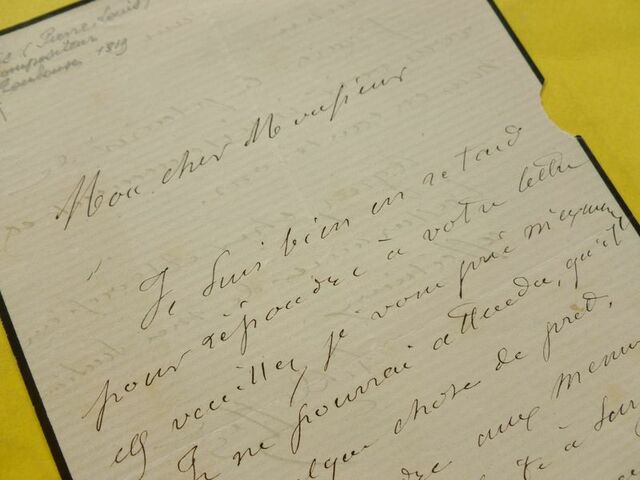 (Pierre Louis)
compositeur
Toulouse 1819
Mon cher Monsieur
Je suis bien en retard
pour répondre à votre lettre
et veuillez je vous prie m'excuser
Je ne pourrai attendre, qu'il
quelque chose de prêt.
aux menu
à